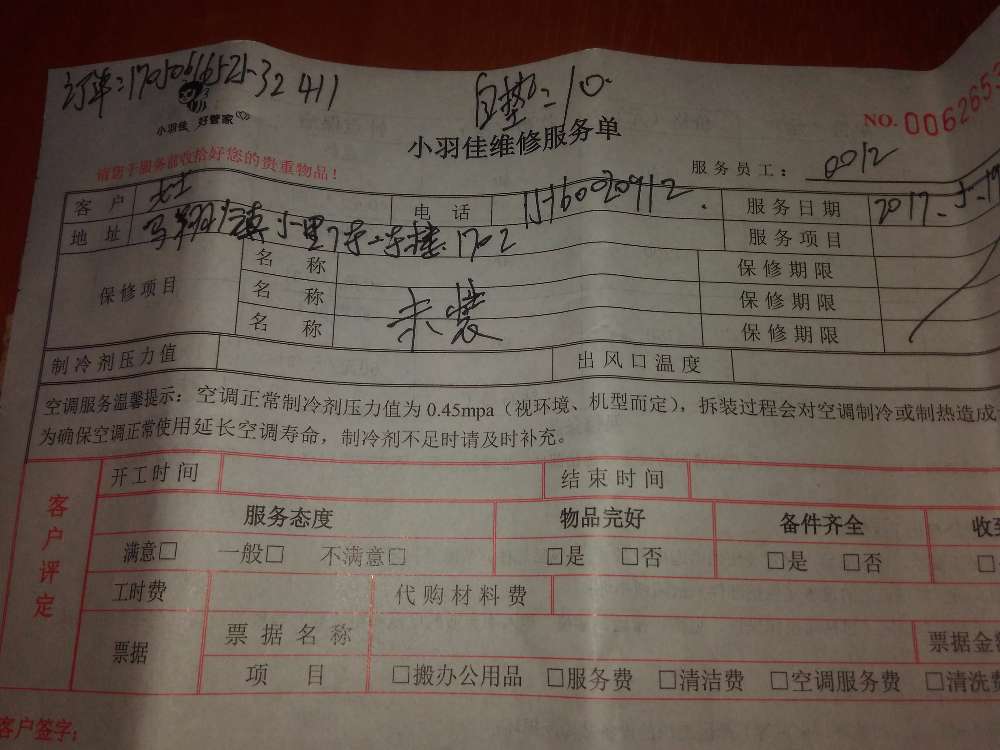 订单:17050616525-32411
自垫:10.
小羽佳 好管家
小羽佳维修服务单
NO. 0062653
请您于服务前收拾好您的贵重物品!
服务员工: 0012
客户 电话 服务日期 2017.5.19
地址 1702 服务项目
保修项目 名称 保修期限
名称 未装 保修期限
名称 保修期限
制冷剂压力值 出风口温度
空调服务温馨提示:空调正常制冷剂压力值为0.45mpa(视环境、机型而定),拆装过程会对空调制冷或制热造成
为确保空调正常使用延长空调寿命,制冷剂不足时请及时补充。
客户评定
开工时间 结束时间
服务态度 物品完好 备件齐全 收
满意□ 一般□ 不满意□ □是 □否 □是 □否 □
工时费 代购材料费
票据 票据名称 票据金
项目 □搬办公用品 □服务费 □清洁费 □空调服务费 □清洗费
客户签字: